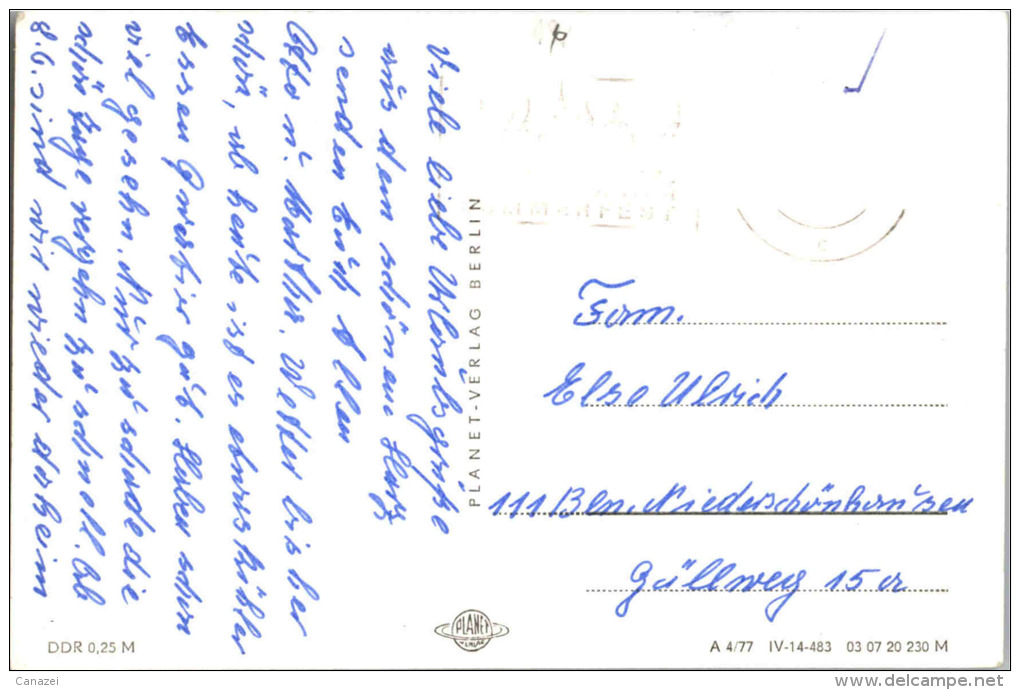 Viele liebe Urlaubsgrüße
aus dem schönen Harz
senden Euch allen
Otto u. Marthe. Wetter bisher
schön, heute ist es etwas kühler
Essen Quartier gut. Haben schon
viel gesehn. Nur zu schade die
schön Tage vergehn zu schnell. Ab
8.6. sind wir wieder daheim
PLANET-VERLAG BERLIN
C
Fam.
Else Ulrich
111 Bln. Niederschönhausen
Güllweg 15a
PLANET
DDR 0,25 M
A 4/77 IV-14-483 03 07 20 230 M
www.delcampe.net
Canazei